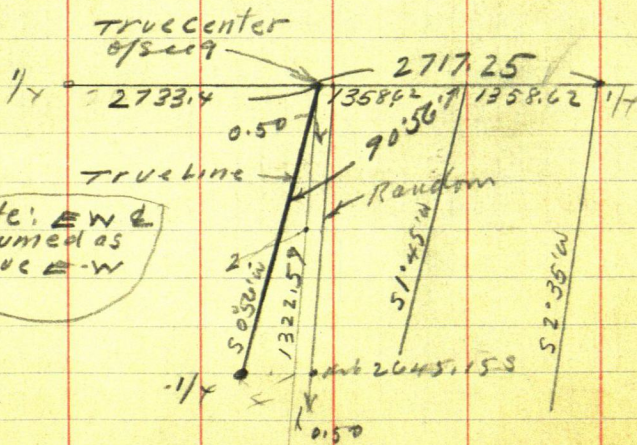 True Center
of Sec 9
1/4
2733.4
2717.25
1358.62
1358.62
1/4
0.50
90°56'
True Line
Random
EW
umed as
E-W
2.
S 0°56' W
1322.59
S 1°45' W
S 2°35' W
1/4
2645.15 S
0.50